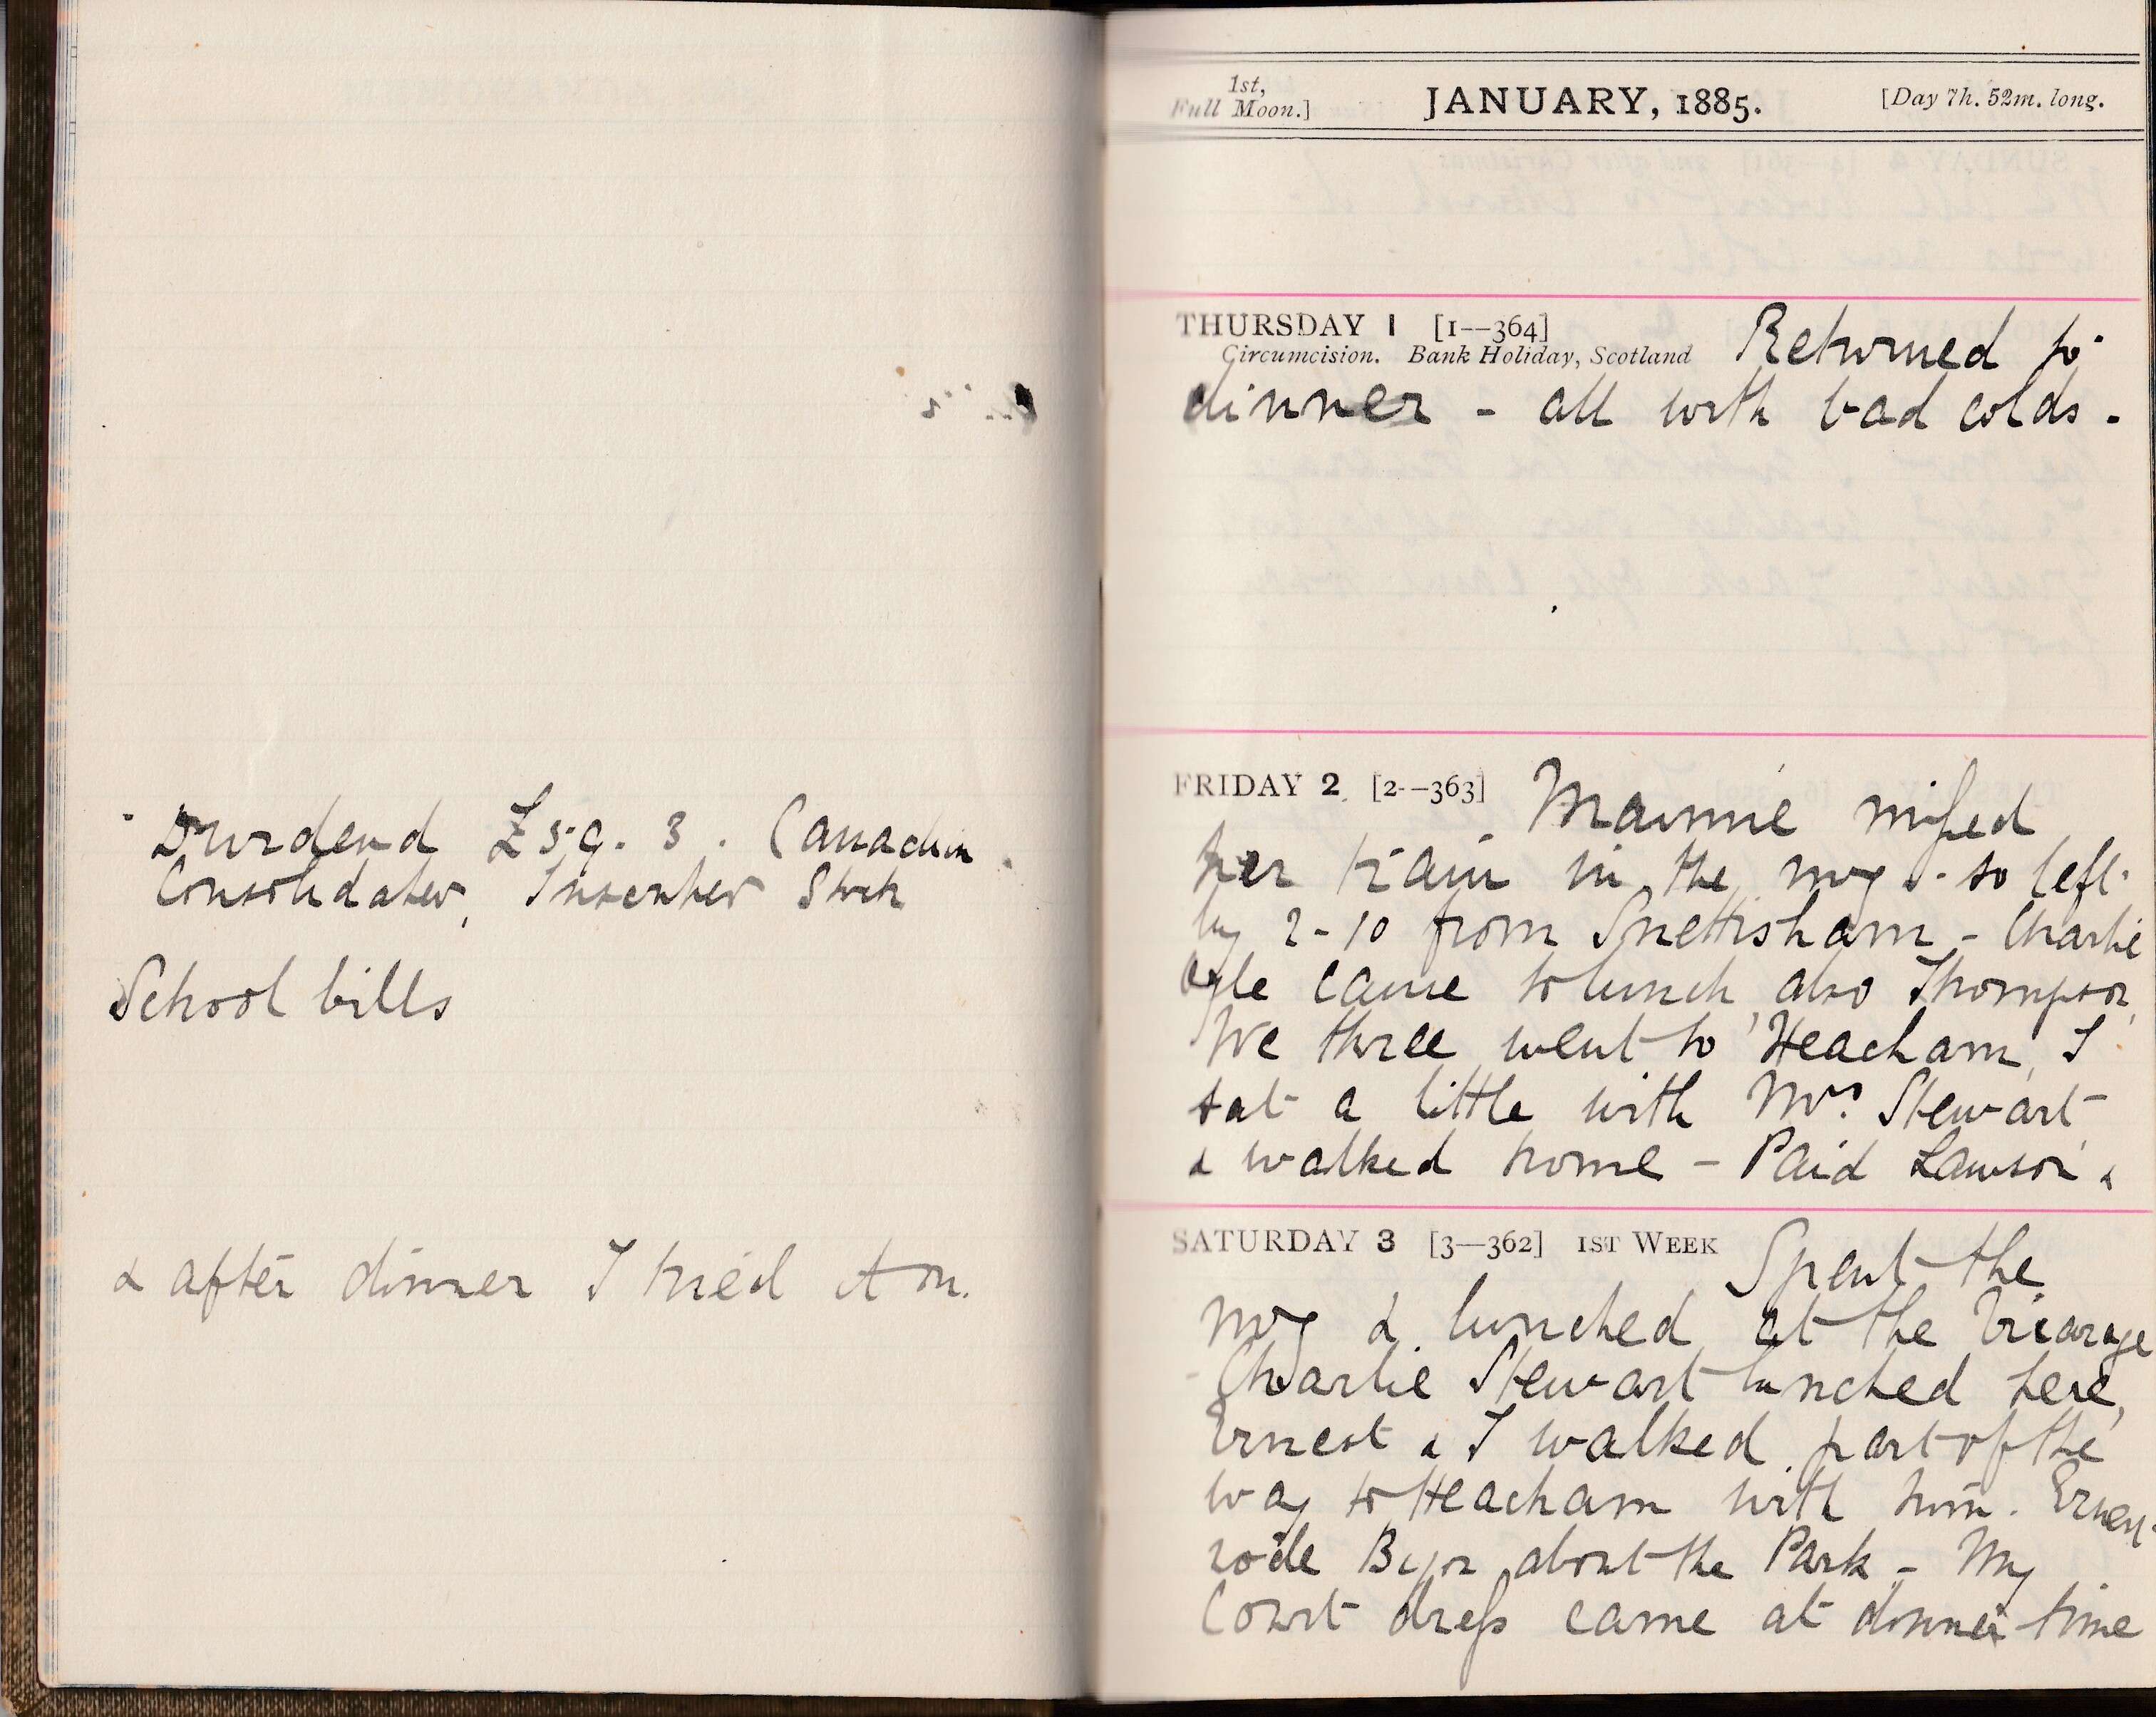 Dividend £59. 3. Canadian
Consolidated, Inscribed Stock
School bills
& after dinner I tried it on.
1st,
Full Moon.]
JANUARY, 1885.
[Day 7h. 52m. long.
THURSDAY 1 [1—364]
Circumcision. Bank Holiday, Scotland
Returned to
dinner - all with bad colds -
FRIDAY 2 [2—363]
Mainnie missed
her train in the mng & so left
by 2-10 from Snettisham - Charlie
came to lunch, also Thompson,
We three went to Heacham, I
sat a little with Mrs Stewart
& walked home - Paid Lawson &
SATURDAY 3 [3—362] 1ST WEEK
Spent the
mng & lunched at the Vicarage
- Charlie Stewart lunched here,
Ernest & I walked part of the
way to Heacham with him. Ernest
rode about the Park - My
Court dress came at dinner time